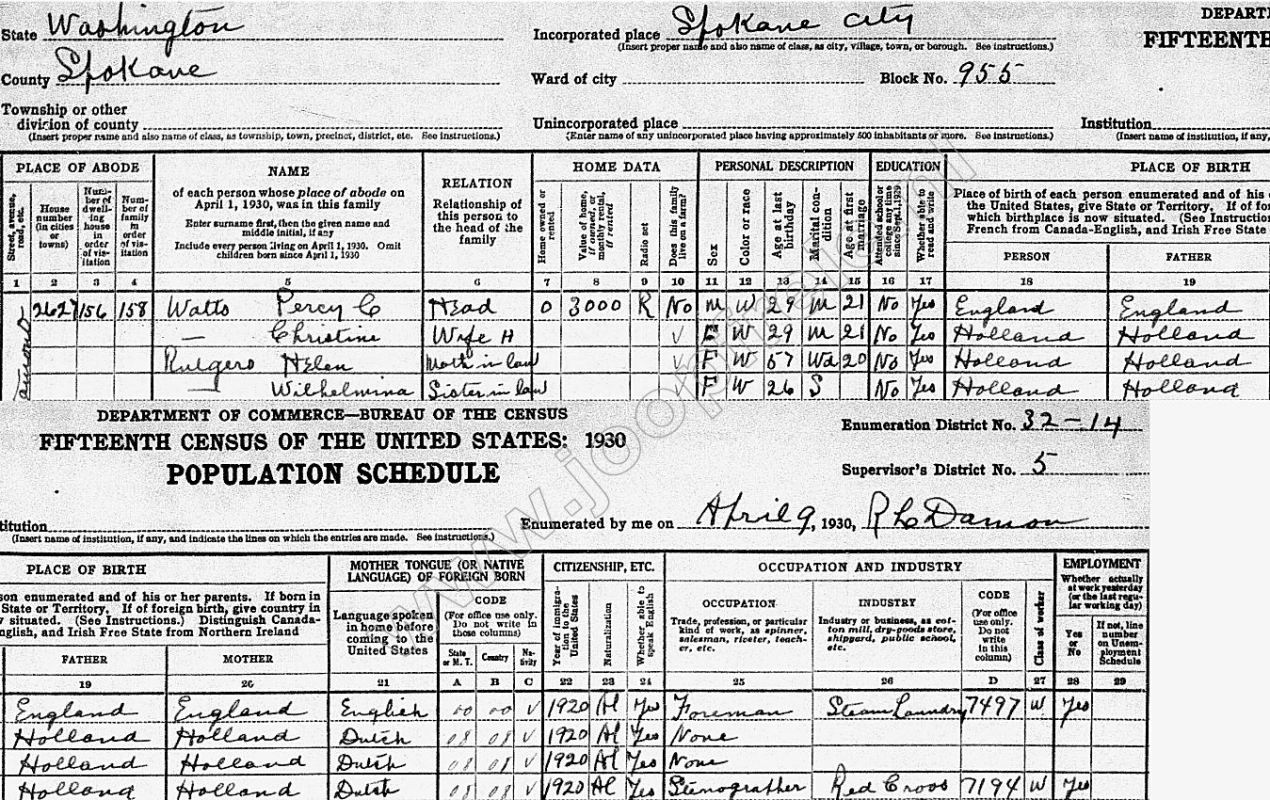 State Washington
Incorporated place Spokane City
(Insert proper name and also name of class, as city, village, town, or borough. See instructions.)
DEPART
FIFTEENTH
County Spokane
Ward of city
Block No. 955
Township or other
division of county
(Insert proper name and also name of class, as township, town, precinct, district, etc. See instructions.)
Unincorporated place
(Enter name of any unincorporated place having approximately 500 inhabitants or more. See instructions.)
Institution
(Insert name of institution, if any,
PLACE OF ABODE NAME RELATION HOME DATA PERSONAL DESCRIPTION EDUCATION PLACE OF BIRTH
Street, avenue, road, etc.
House number (in cities or towns)
Number of dwelling house in order of visitation
Number of family in order of visitation
of each person whose place of abode on
April 1, 1930, was in this family
Enter surname first, then the given name and
middle initial, if any
Include every person living on April 1, 1930. Omit
children born since April 1, 1930
Relationship of
this person to
the head of the
family
Home owned or rented
Value of home, if owned, or monthly rental, if rented
Radio set
Does this family live on a farm?
Sex
Color or race
Age at last birthday
Marital condition
Age at first marriage
Attended school or college any time since Sept. 1, 1929
Whether able to read and write
Place of birth of each person enumerated and of his
the United States, give State or Territory. If of fo
which birthplace is now situated. (See Instruction
French from Canada-English, and Irish Free State
PERSON FATHER
1 2 3 4 5 6 7 8 9 10 11 12 13 14 15 16 17 18 19
2627 156 158 Watts Percy C Head O 3000 R No M W 29 M 21 No Yes England England
— Christine Wife H V F W 29 M 21 No Yes Holland Holland
Rutgers Helen Moth in law V F W 57 Wd 20 No Yes Holland Holland
— Wilhelmina Sister in law V F W 26 S No Yes Holland Holland
DEPARTMENT OF COMMERCE—BUREAU OF THE CENSUS
FIFTEENTH CENSUS OF THE UNITED STATES: 1930
POPULATION SCHEDULE
Enumeration District No. 32-14
Supervisor's District No. 5
titution
(Insert name of institution, if any, and indicate the lines on which the entries are made. See instructions.)
Enumerated by me on April 9, 1930, R C Damon
PLACE OF BIRTH
MOTHER TONGUE (OR NATIVE
LANGUAGE) OF FOREIGN BORN
CITIZENSHIP, ETC. OCCUPATION AND INDUSTRY EMPLOYMENT
son enumerated and of his or her parents. If born in
State or Territory. If of foreign birth, give country in
situated. (See Instructions.) Distinguish Canada-
nglish, and Irish Free State from Northern Ireland
Language spoken
in home before
coming to the
United States
CODE
(For office use only.
Do not write in
these columns)
State or M. T.
Country
Nativity
Year of immigration to the United States
Naturalization
Whether able to speak English
OCCUPATION
Trade, profession, or particular
kind of work, as spinner,
salesman, riveter, teach-
er, etc.
INDUSTRY
Industry or business, as cot-
ton mill, dry-goods store,
shipyard, public school,
etc.
CODE
(For office
use only.
Do not
write
in this
column)
Class of worker
Whether actually
at work yesterday
(or the last regu-
lar working day)
Yes or No
If not, line
number
on Unem-
ployment
Schedule
FATHER MOTHER
19 20 21 A B C 22 23 24 25 26 D 27 28 29
England England English 00 00 V 1920 Al Yes Foreman Steam Laundry 7497 W Yes
Holland Holland Dutch 08 08 V 1920 Al Yes None
Holland Holland Dutch 08 08 V 1920 Al Yes None
Holland Holland Dutch 08 08 V 1920 Al Yes Stenographer Red Cross 7194 W Yes